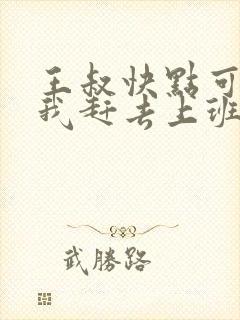 王叔快點可
我赶去上班
武勝路